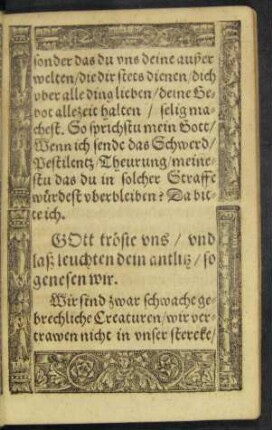 sonder das du vns deine außer
welten/die dir stets dienen/dich
vber alle ding lieben/deine Ge-
bot allezeit halten / selig ma-
chest. So sprichstu mein Gott/
Wenn ich sende das Schwerd/
Pestilentz/Theurung/meine-
stu das du in solcher Straffe
würdest vberbleiben? Da bit-
te ich.
GOtt tröste vns / vnd
laß leuchten dein antlitz/so
genesen wir.
Wir sind zwar schwache ge-
brechliche Creaturen/wir ver-
trawen nicht in vnser stercke/